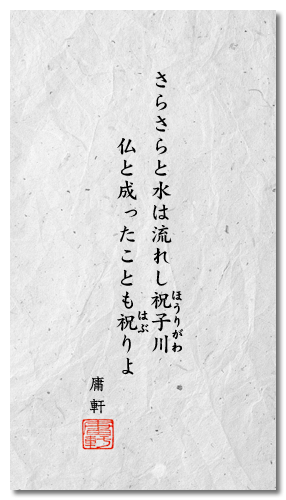 さらさらと水は流れし祝子川
ほうりがわ
仏と成ったことも祝りよ
はぶ
庸軒
庸軒